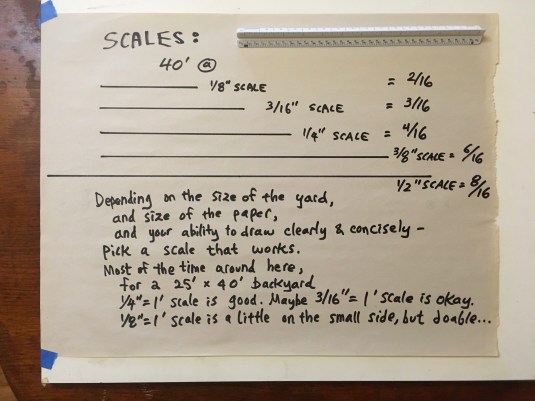 SCALES:
40' @
1/8" SCALE = 2/16
3/16" SCALE = 3/16
1/4" SCALE = 4/16
3/8" SCALE = 6/16
1/2" SCALE = 8/16
Depending on the size of the yard,
and size of the paper,
and your ability to draw clearly & concisely -
Pick a scale that works.
Most of the time around here,
for a 25' x 40' backyard
1/4"=1' scale is good. Maybe 3/16"=1' scale is okay.
1/8"=1' scale is a little on the small side, but doable...